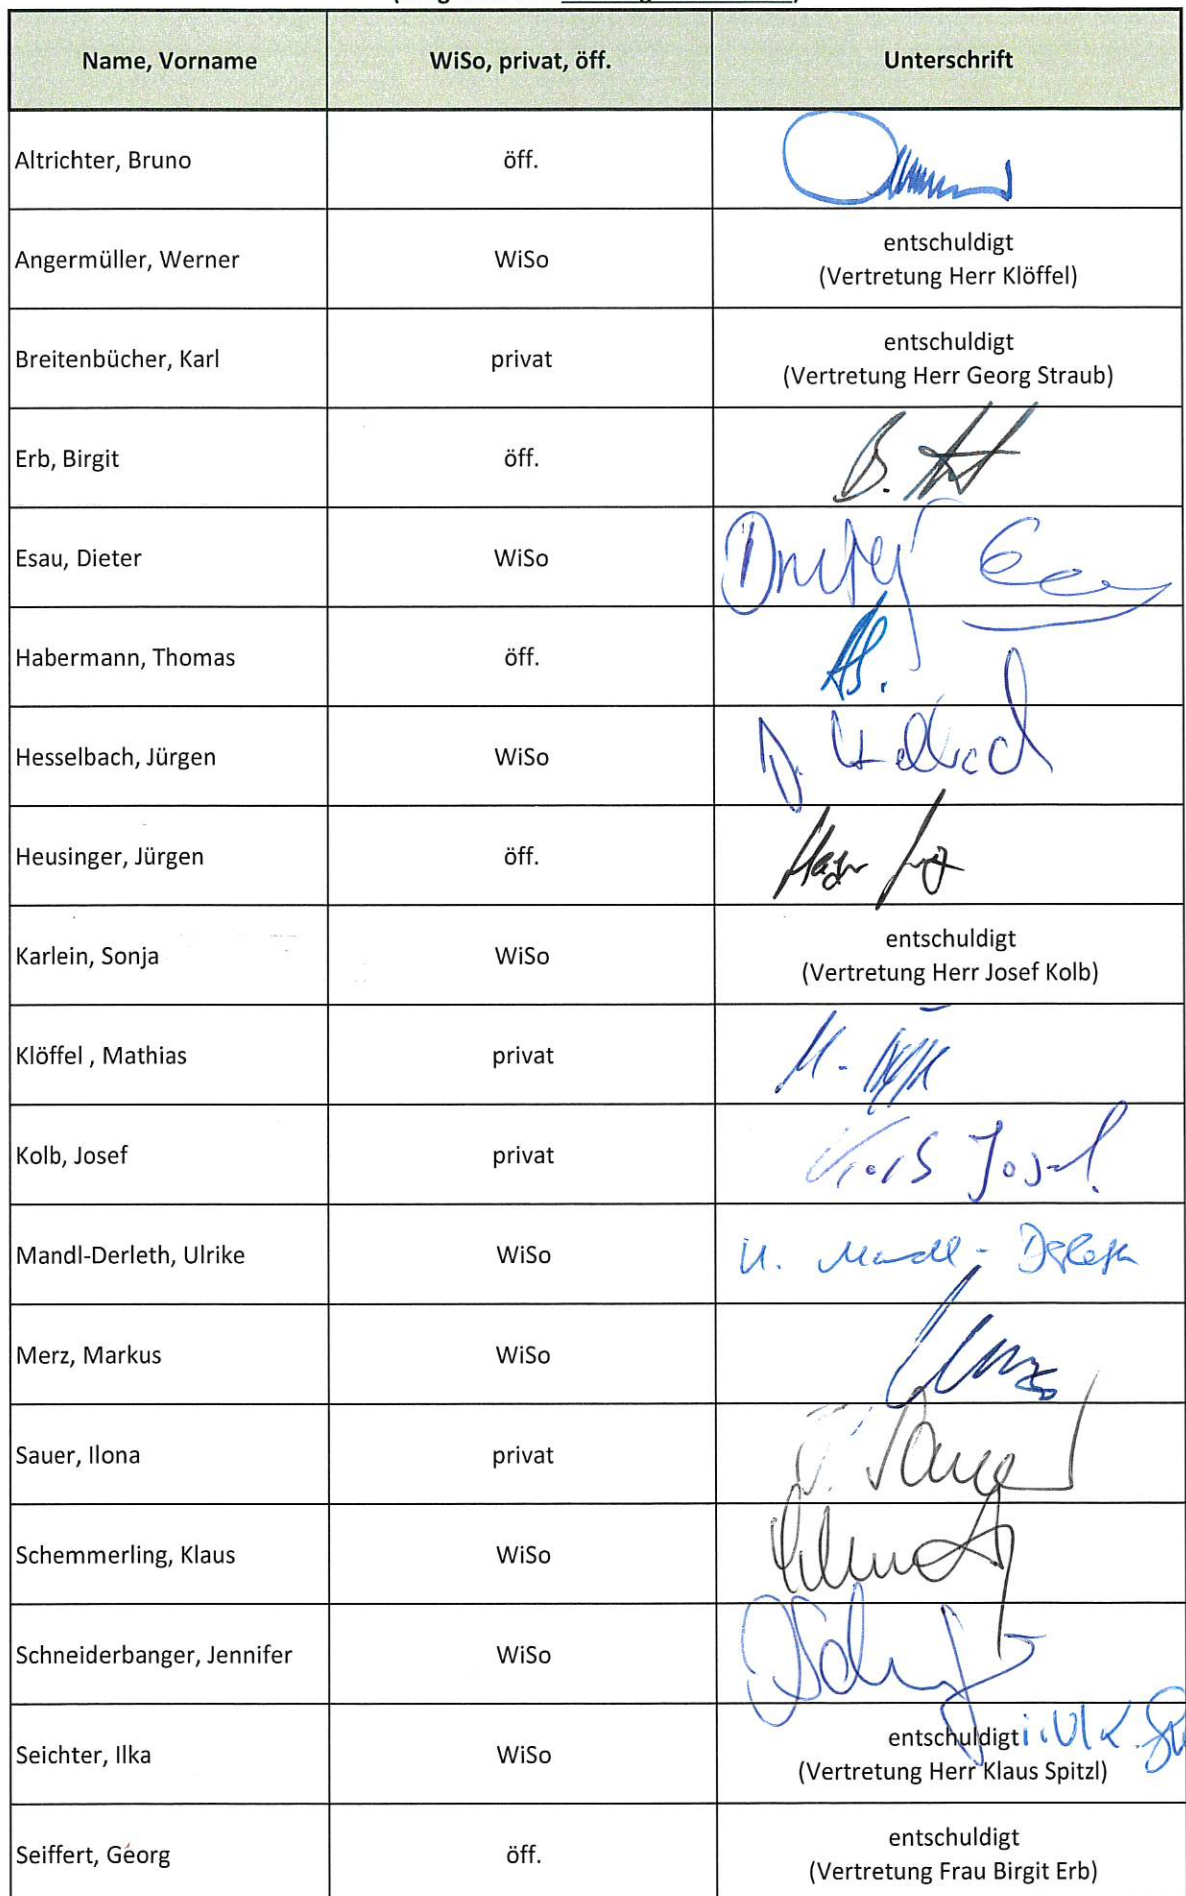 Name, Vorname WiSo, privat, öff. Unterschrift
Altrichter, Bruno öff.
Angermüller, Werner WiSo entschuldigt
(Vertretung Herr Klöffel)
Breitenbücher, Karl privat entschuldigt
(Vertretung Herr Georg Straub)
Erb, Birgit öff. B.
Esau, Dieter WiSo
Habermann, Thomas öff.
Hesselbach, Jürgen WiSo
Heusinger, Jürgen öff.
Karlein, Sonja WiSo entschuldigt
(Vertretung Herr Josef Kolb)
Klöffel , Mathias privat M.
Kolb, Josef privat Kolb Josef
Mandl-Derleth, Ulrike WiSo U. Mandl-Derleth
Merz, Markus WiSo
Sauer, Ilona privat I. Sauer
Schemmerling, Klaus WiSo
Schneiderbanger, Jennifer WiSo
Seichter, Ilka WiSo entschuldigt i.V. K.
(Vertretung Herr Klaus Spitzl)
Seiffert, Georg öff. entschuldigt
(Vertretung Frau Birgit Erb)